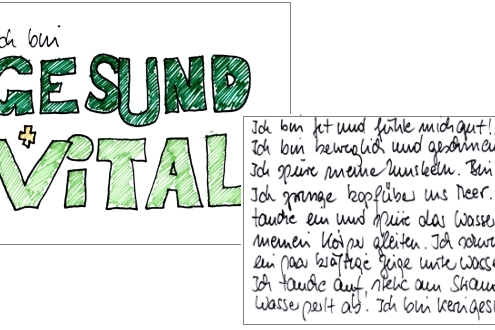 ich bin
GESUND
+
ViTAL
Ich bin fit und fühle mich gut!
Ich bin beweglich und
Ich spüre meine Muskeln.
Ich springe kopfüber ins Meer.
tauche ein und spüre das Wasser
meinen Körper gleiten. Ich
ein paar kräftige Züge unter Wasser
Ich tauche auf, stehe am
Wasser perlt ab! Ich bin